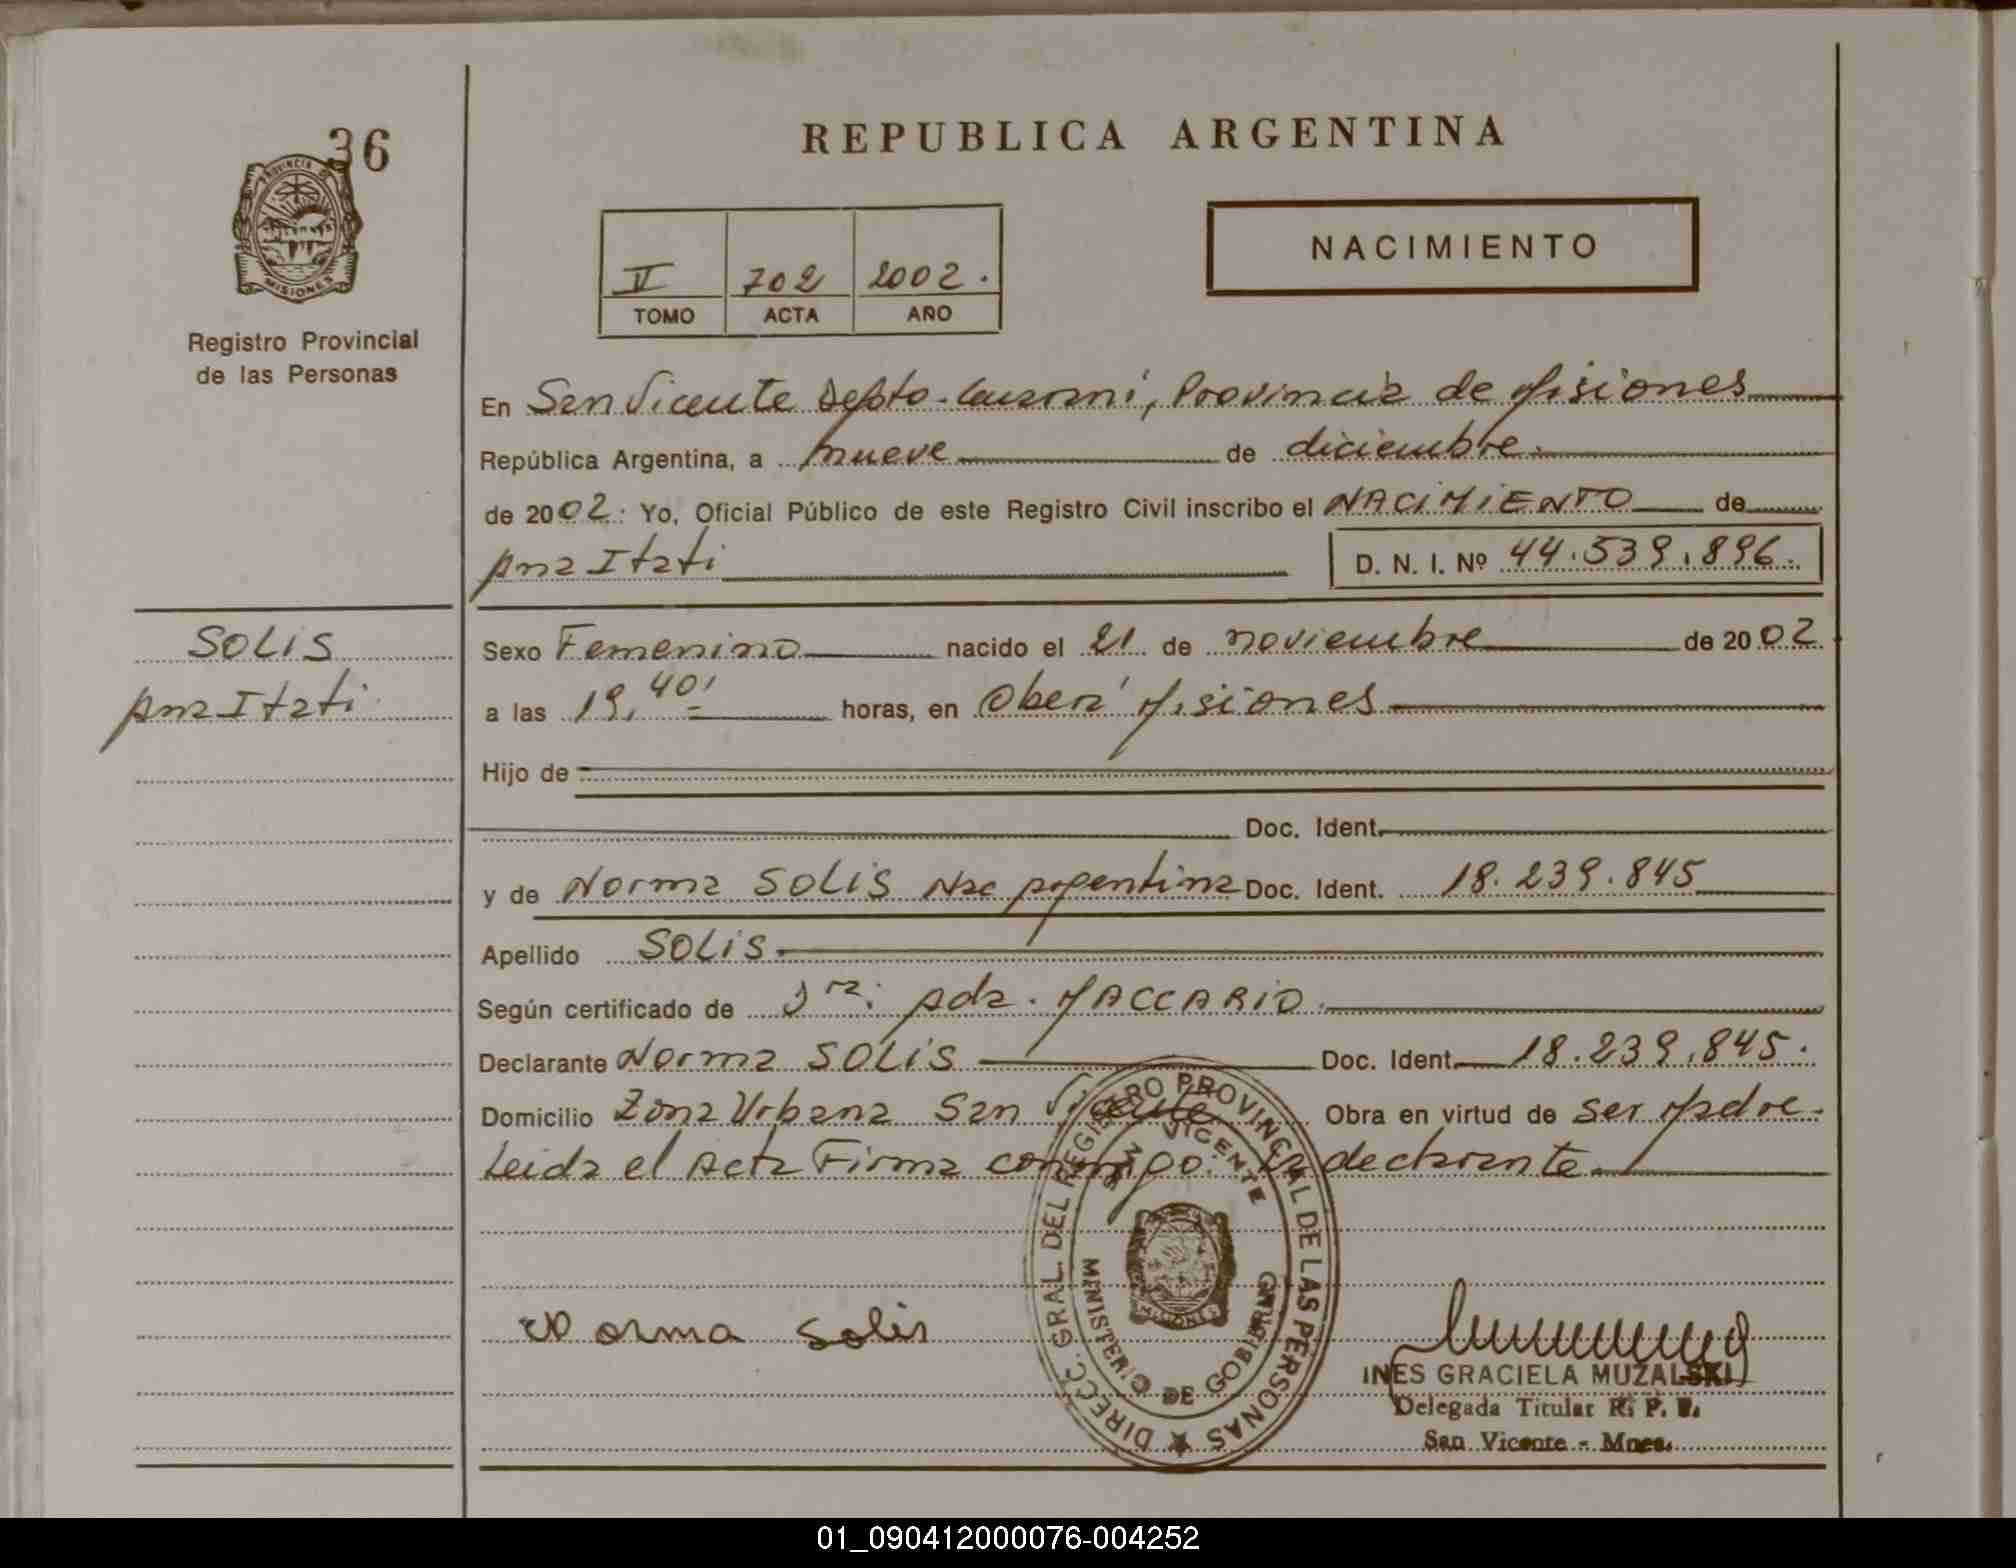 36
PROVINCIA DE
MISIONES
Registro Provincial
de las Personas
SOLIS
Ana Itati
REPUBLICA ARGENTINA
II 702 2002.
TOMO ACTA AÑO
NACIMIENTO
En San Vicente Depto. Guaraní, Provincia de Misiones
República Argentina, a nueve de diciembre
de 2002. Yo, Oficial Público de este Registro Civil inscribo el NACIMIENTO de
Ana Itati D. N. I. Nº 44.539.896.
Sexo Femenino nacido el 21 de noviembre de 2002
a las 19,40' horas, en Oberá Misiones
Hijo de
Doc. Ident.
y de Norma SOLIS Nac Argentina Doc. Ident. 18.239.845
Apellido SOLIS
Según certificado de Dra. Ada. MACCARIO
Declarante Norma SOLIS Doc. Ident. 18.239.845.
Domicilio Zona Urbana San Vicente Obra en virtud de ser Madre.
Leida el Acta Firma conmigo. La declarante
DIRECC. GRAL. DEL REGISTRO PROVINCIAL DE LAS PERSONAS
SAN VICENTE
MISIONES
MINISTERIO DE GOBIERNO
Norma Solis
INES GRACIELA MUZALSKI
Delegada Titular R. P. P.
San Vicente - Mnes.
01_090412000076-004252